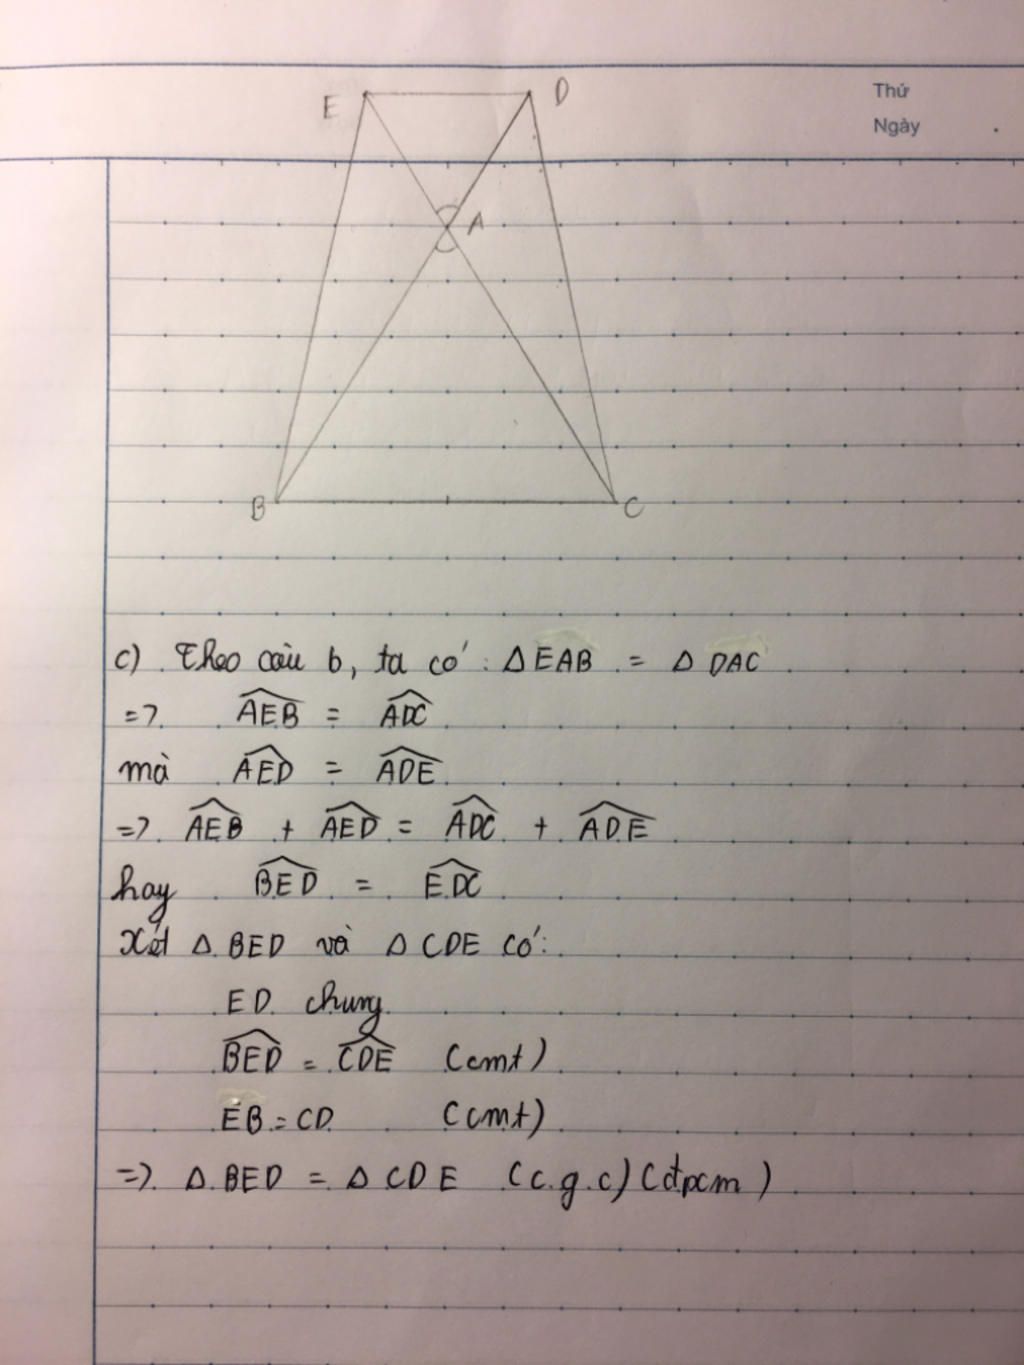 Thứ
Ngày
E D
A
B C
c) Theo câu b, ta có: ΔEAB = Δ DAC
=> \widehat{AEB} = \widehat{ADC}
mà \widehat{AED} = \widehat{ADE}
=> \widehat{AEB} + \widehat{AED} = \widehat{ADC} + \widehat{ADE}
hay \widehat{BED} = \widehat{EDC}
Xét Δ BED và Δ CDE có:
ED chung
\widehat{BED} = \widehat{CDE} (cmt)
EB = CD (cmt)
=> Δ BED = Δ CDE (c.g.c) (đpcm)